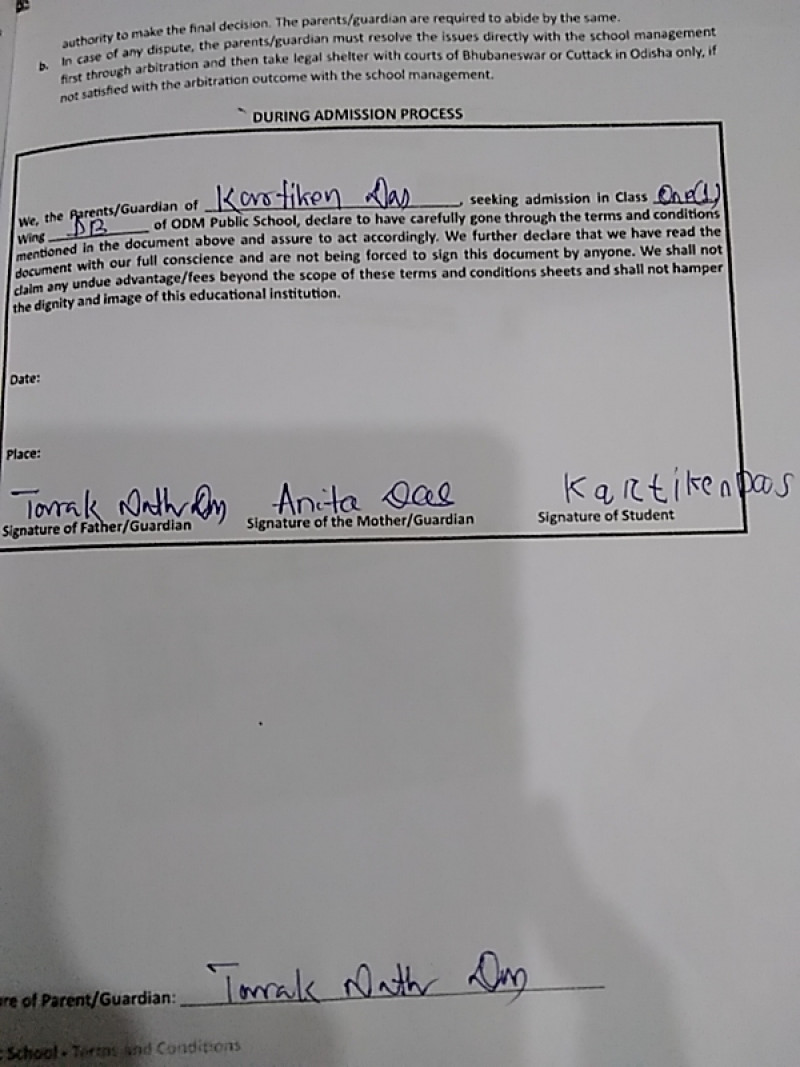 authority to make the final decision. The parents/guardian are required to abide by the same.
b. In case of any dispute, the parents/guardian must resolve the issues directly with the school management
first through arbitration and then take legal shelter with courts of Bhubaneswar or Cuttack in Odisha only, if
not satisfied with the arbitration outcome with the school management.
DURING ADMISSION PROCESS
We, the Parents/Guardian of Kartiken Das, seeking admission in Class One(1)
Wing DB of ODM Public School, declare to have carefully gone through the terms and conditions
mentioned in the document above and assure to act accordingly. We further declare that we have read the
document with our full conscience and are not being forced to sign this document by anyone. We shall not
claim any undue advantage/fees beyond the scope of these terms and conditions sheets and shall not hamper
the dignity and image of this educational institution.
Date:
Place:
Tarak Nath Das Anita Das Kartiken Das
Signature of Father/Guardian Signature of the Mother/Guardian Signature of Student
re of Parent/Guardian: Tarak Nath Das
School - Terms and Conditions